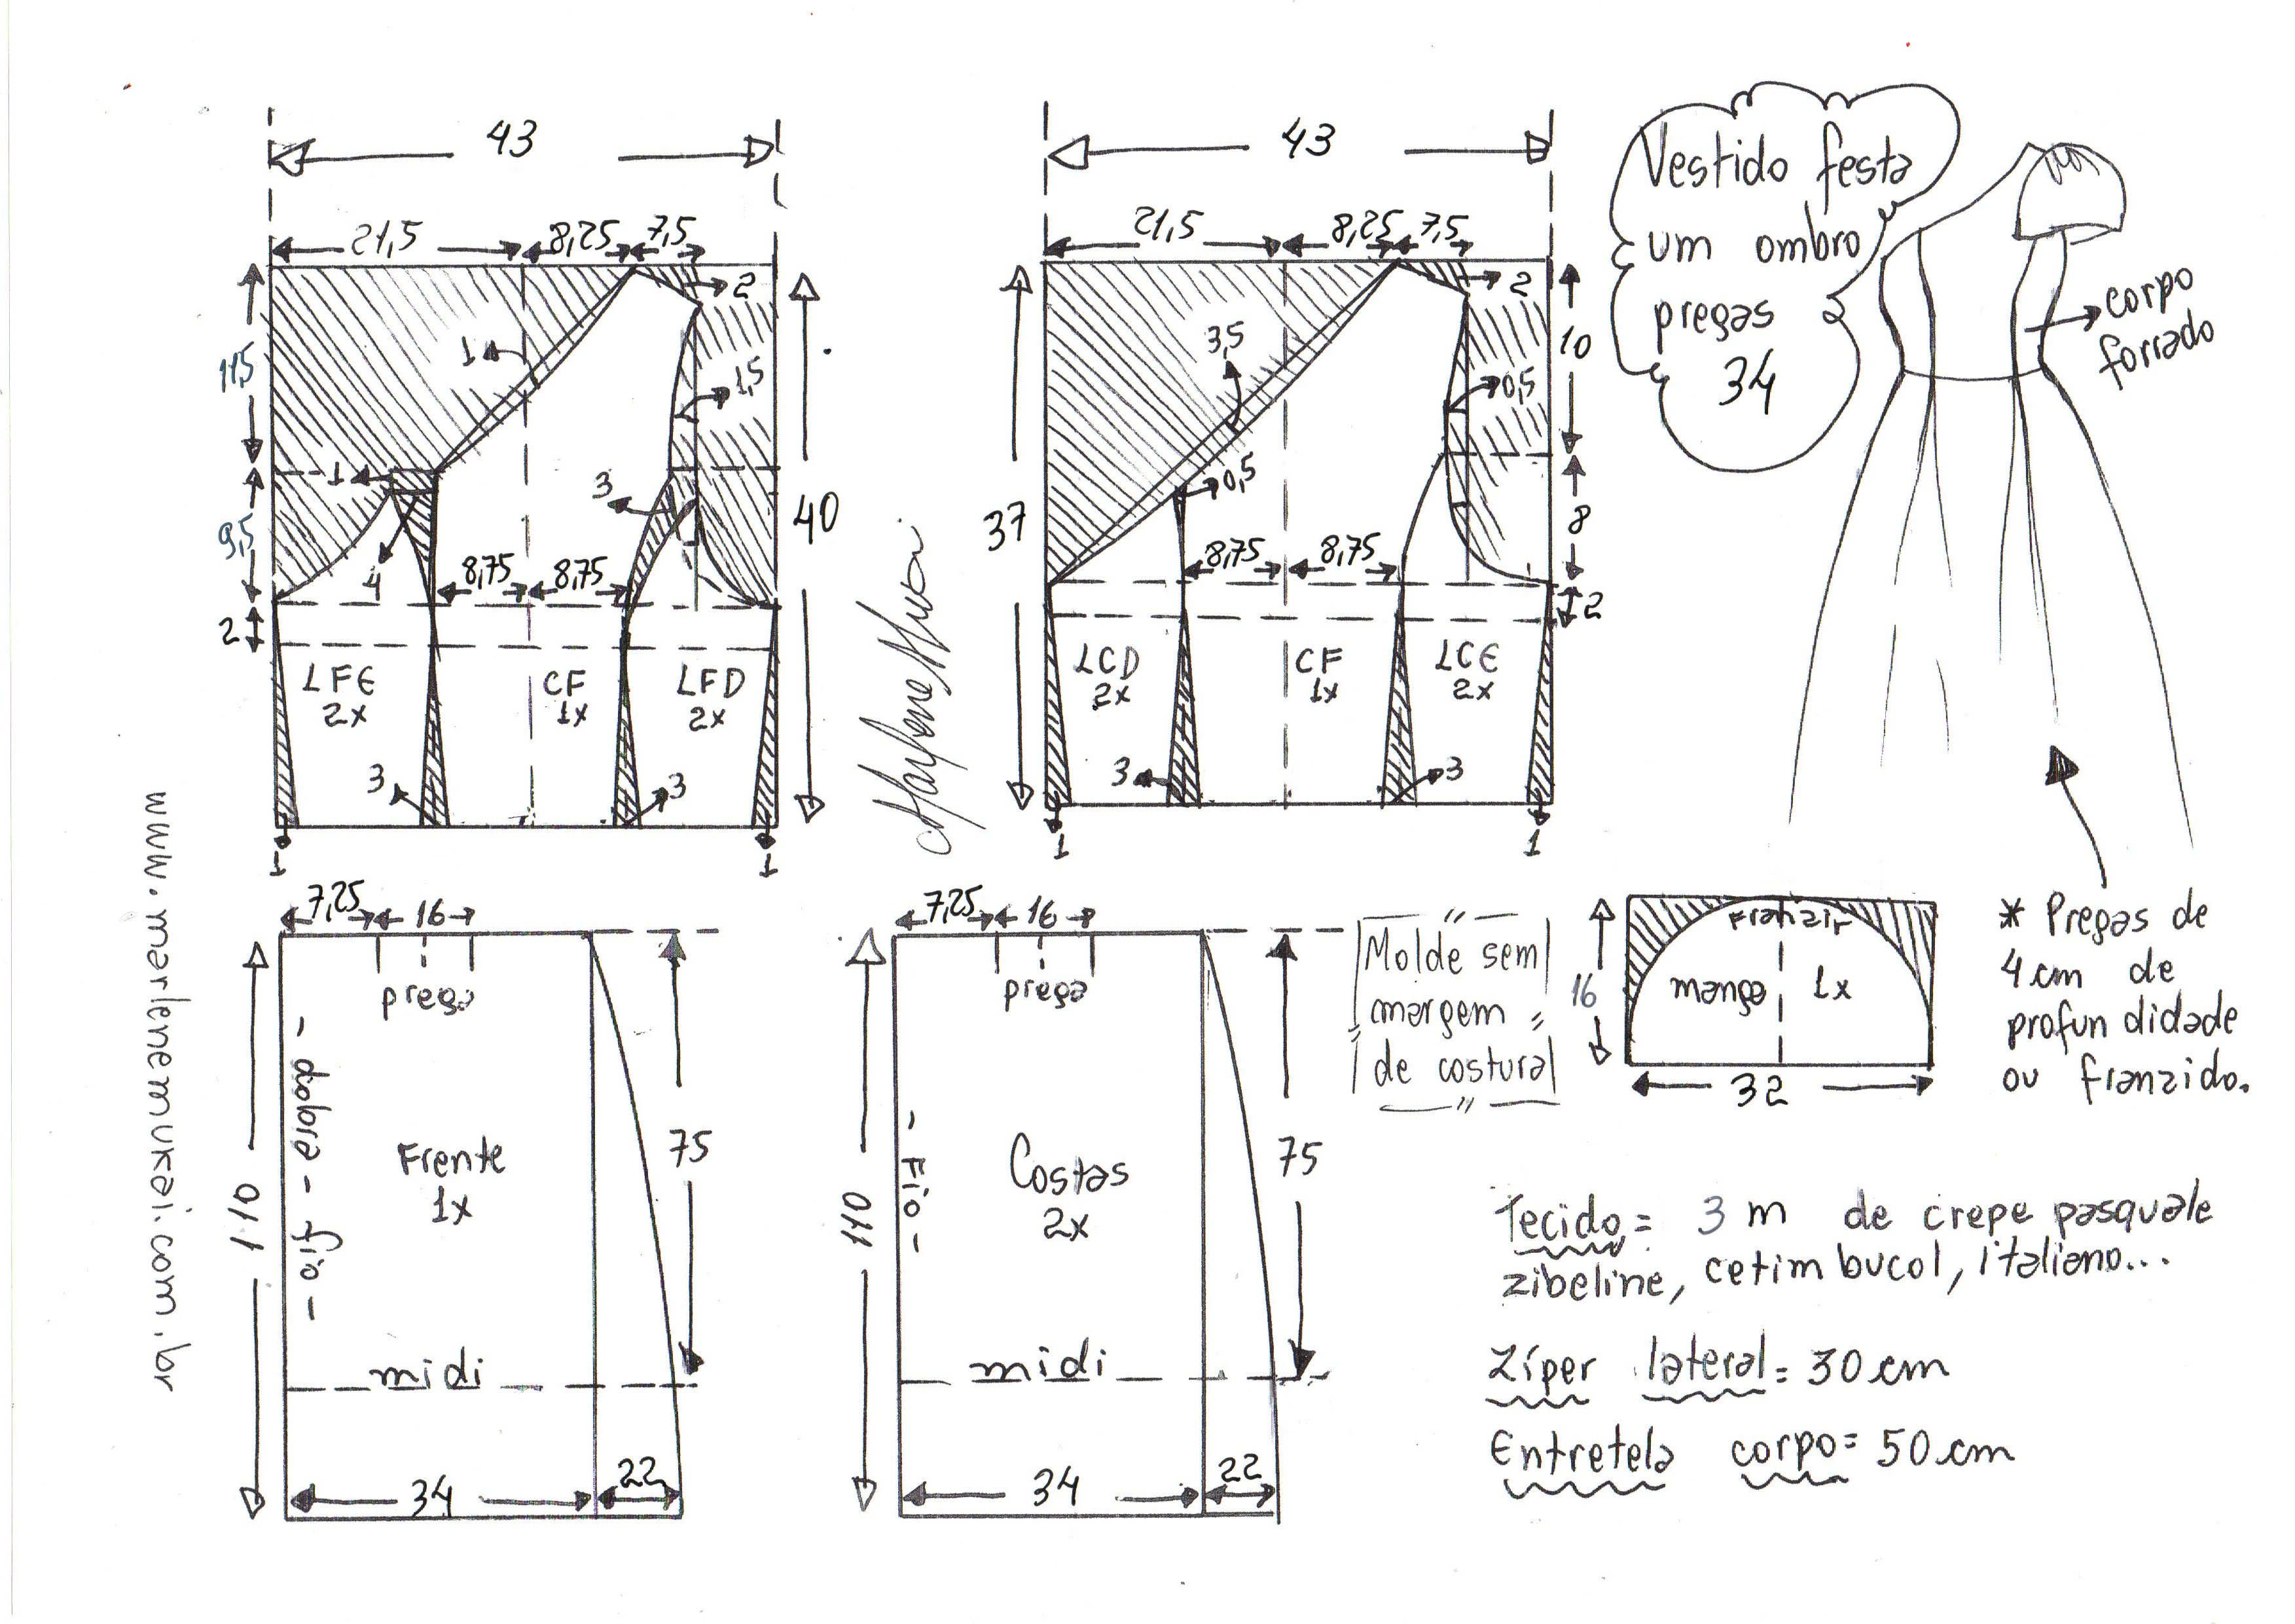 43
21,5
8,25
7,5
2
11,5
1
1,5
1
3
9,5
4
8,75
8,75
40
2
LFE
2x
CF
1x
LFD
2x
3
3
1
1
43
21,5
8,25
7,5
2
3,5
10
0,5
0,5
37
8,75
8,75
8
2
LCD
2x
CF
1x
LCE
2x
3
3
1
1
Vestido festa
um ombro
pregas
34
corpo
forrado
www.marlenemukai.com.br
7,25
16
prega
110
- dobra - fio -
Frente
1x
75
midi
34
22
7,25
16
prega
110
- Fio -
Costas
2x
75
midi
34
22
Molde sem
margem
de costura
Franzir
manga 1x
16
32
* Pregas de
4 cm de
profun didade
ou franzido.
Tecido = 3 m de crepe pasquale
zibeline, cetim bucol, italiano...
Zíper lateral = 30 cm
Entretela corpo = 50 cm